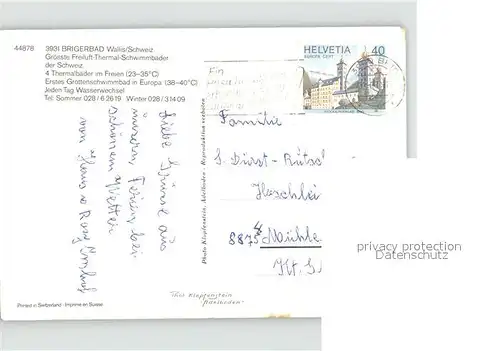 44878
3931 BRIGERBAD Wallis/Schweiz
Grösste Freiluft-Thermal-Schwimmbäder
der Schweiz
4 Thermalbäder im Freien (23–35°C)
Erstes Grottenschwimmbad in Europa (38–40°C)
Jeden Tag Wasserwechsel
Tel. Sommer 028 / 6 26 19 Winter 028 / 3 14 09
Liebe Grüsse aus
unseren Ferien bei
schönem Wetter
von Hans + Rosy
Printed in Switzerland - Imprimé en Suisse
Photo Klopfenstein, Adelboden - Reproduktion verboten
Thos Klopfenstein
Adelboden
HELVETIA 40
EUROPA CEPT
Ein
Familie
S. Dürst-Rütsch
Häschlei
8875 Mühle
4
Kt. G
privacy protection
Datenschutz